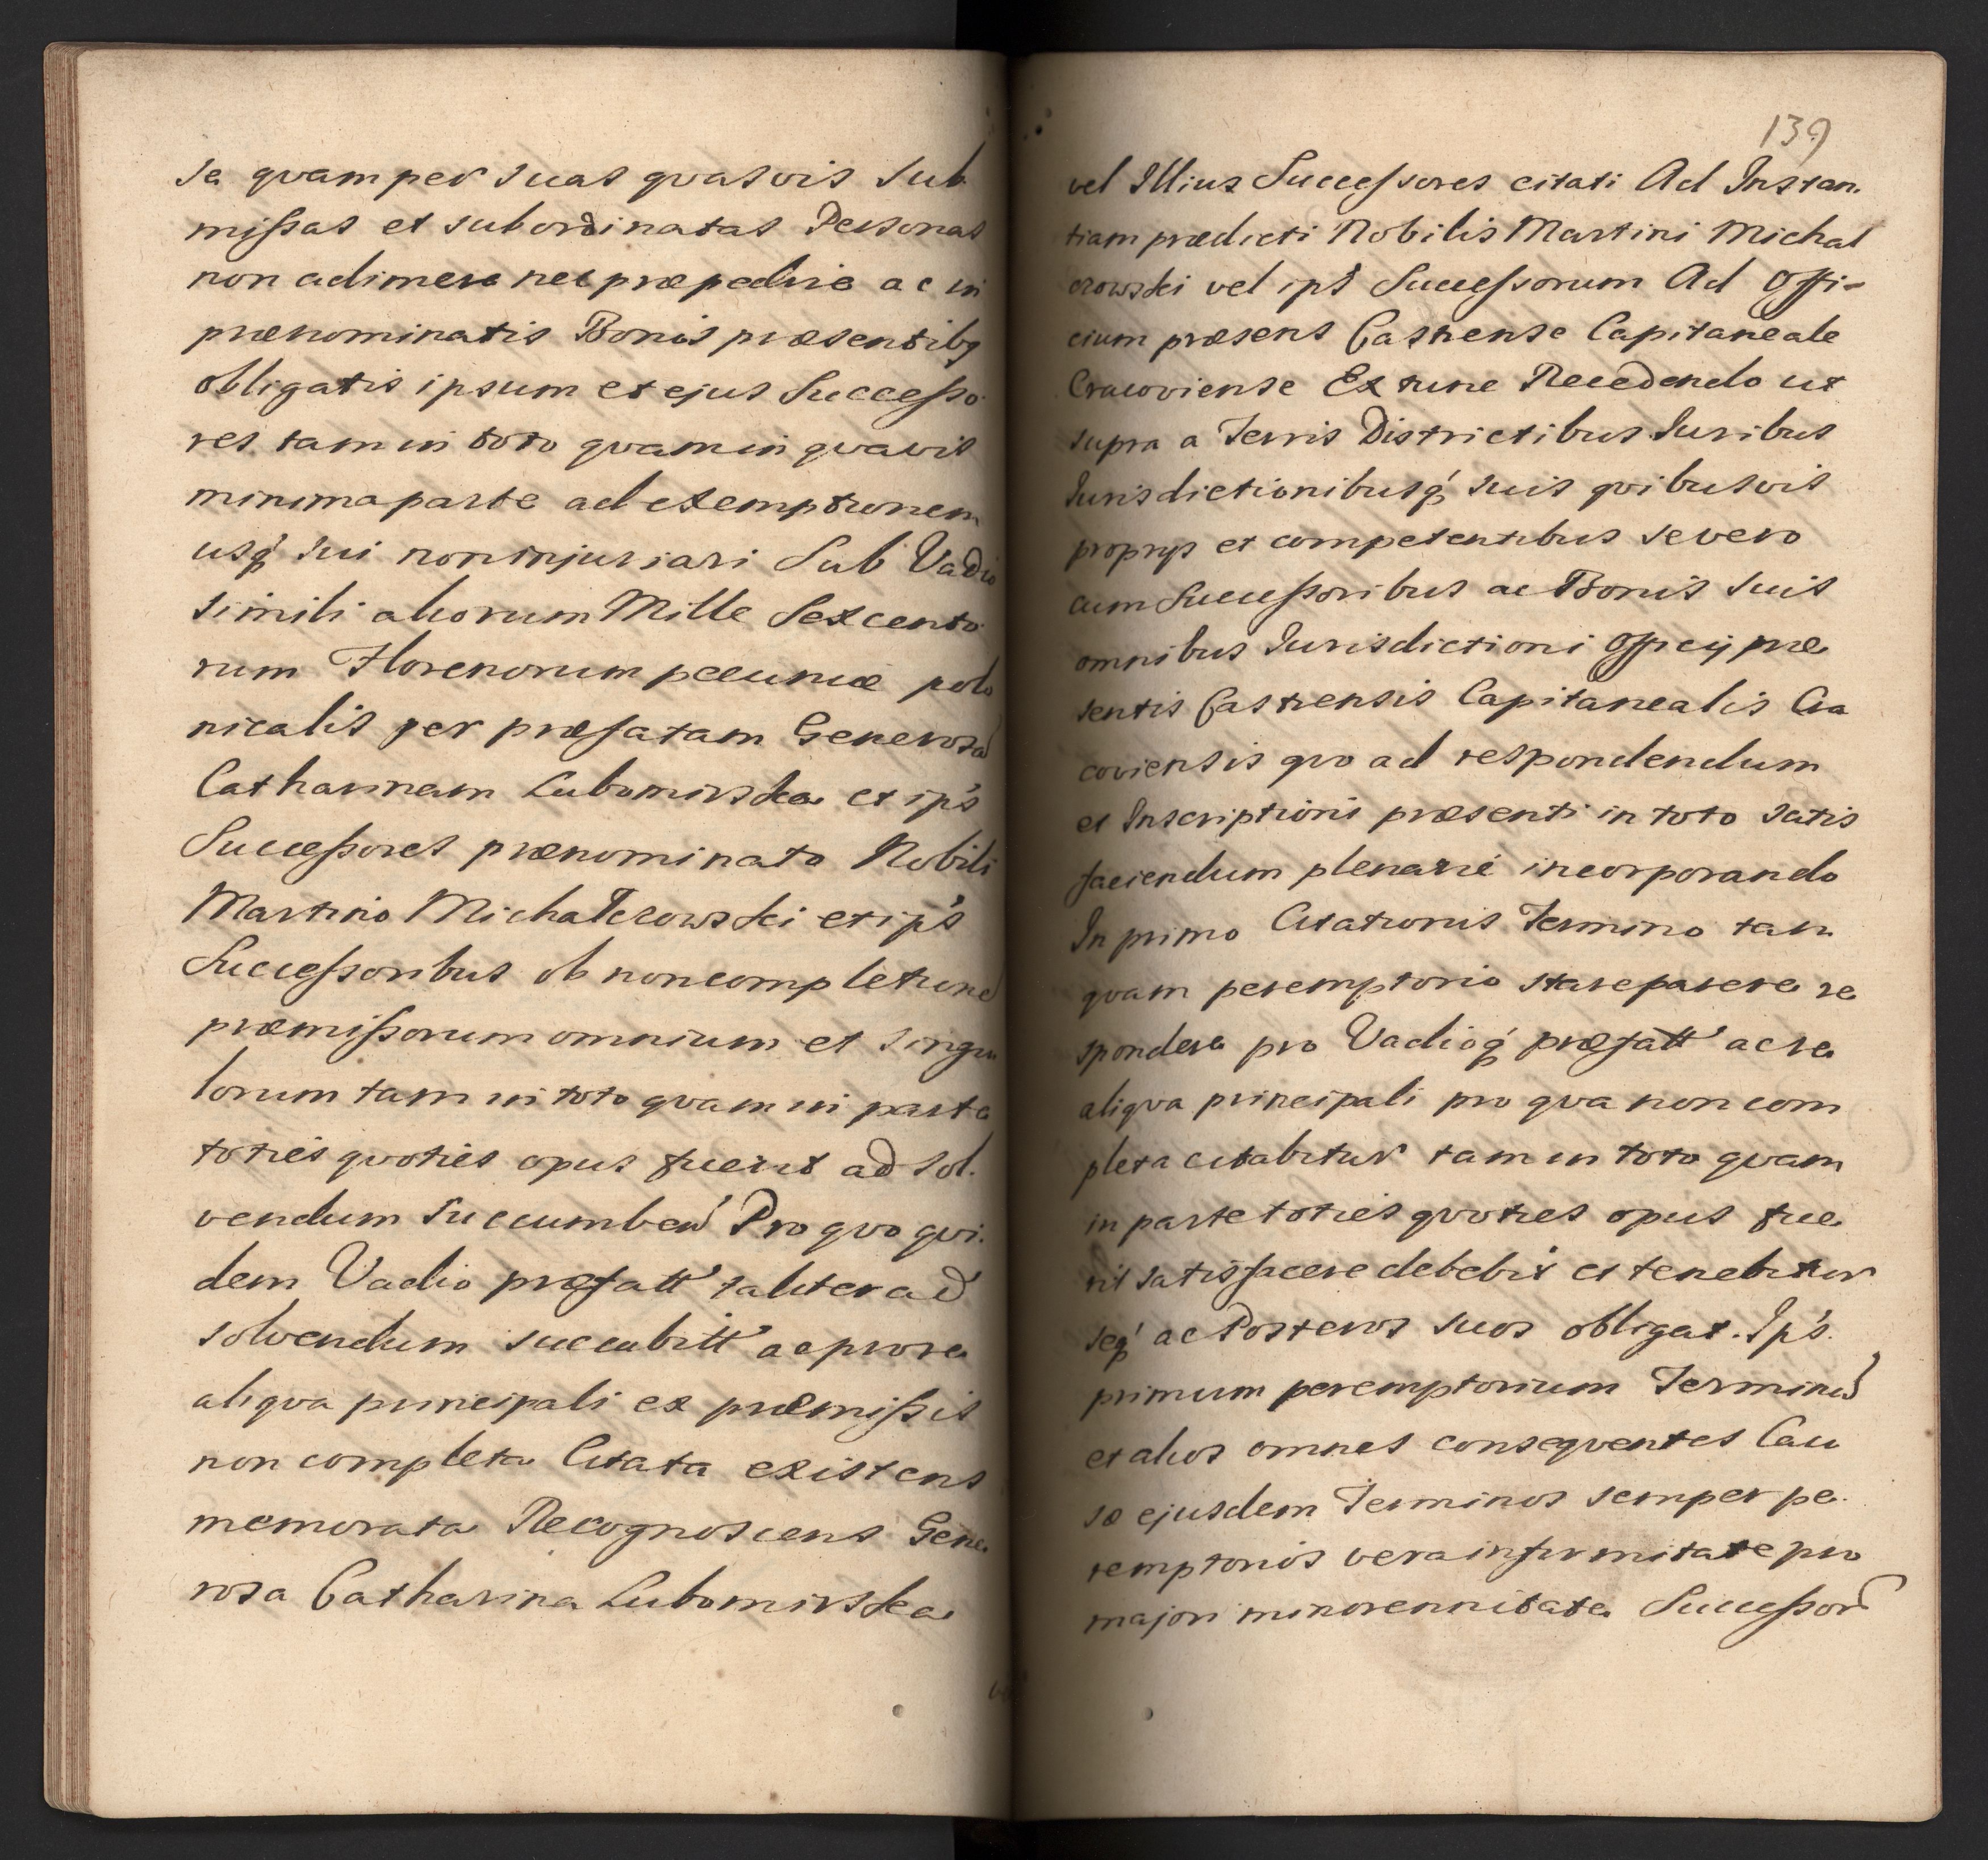 se quam per suas quasvis sub
missas et subordinatas Personas
non adimere nec præpedire ac in
prænominatis Bonis præsentibq
obligatis ipsum et ejus Successo
res tam in toto quam in quavis
minima parte ad exemptionem
usq́ sui non injuriari Sub Vadio
simili aliorum Mille Sexcento
rum Florenorum pecuniæ polo
nicalis per præfatam Generosa
Catharinam Lubomirska et ip's
Successores prænominato Nobili
Martino Michalczowski et ip's
Successoribus ob non completione
præmissorum omnium et singu
lorum tam in toto quam in parte
toties quoties opus fuerit ad sol.
vendum succumben' Pro quo qui.
dem Vadio præfatt' taliter ad
solvendum succubitt' ac pro re
aliqua principali ex præmissis
non completa Citata existens
memorata Recognoscens Gene
rosa Catharina Lubomirska
139
vel Illius Successores citati Ad Instan.
tiam prædicti Nobilis Martini Michal
czowski vel ips' Successorum Ad Offi-
cium præsens Castrense Capitaneale
Cracoviense Ex tunc Recedendo ut
supra a Terris Districtibus Iuribus
Iurisdictionibusq́ suis quibusvis
proprys et competentibus se vero
cum Successoribus ac Bonis suis
omnibus Iurisdictioni Officy præ
sentis Castrensis Capitanealis Cra
coviensis quo ad respondendum
et Inscriptioni præsenti in toto satis
faciendum plenarié incorporando
In primo Citationis Termino tan
quam peremptorio stare parere re
spondere pro Vadioq́ præfatt' ac re
aliqua principali pro qua non com
pleta citabitur tam in toto quam
in parte toties quoties opus fue
rit satisfacere debebit et tenebitur
seq́ ac Posteros suos obligat. Ip's.
primum peremptorium Terminu
et alios omnes consequentes Cau
sæ ejusdem Terminos semper pe.
remptorios vera infirmitate pro
majori minorennitate Successor